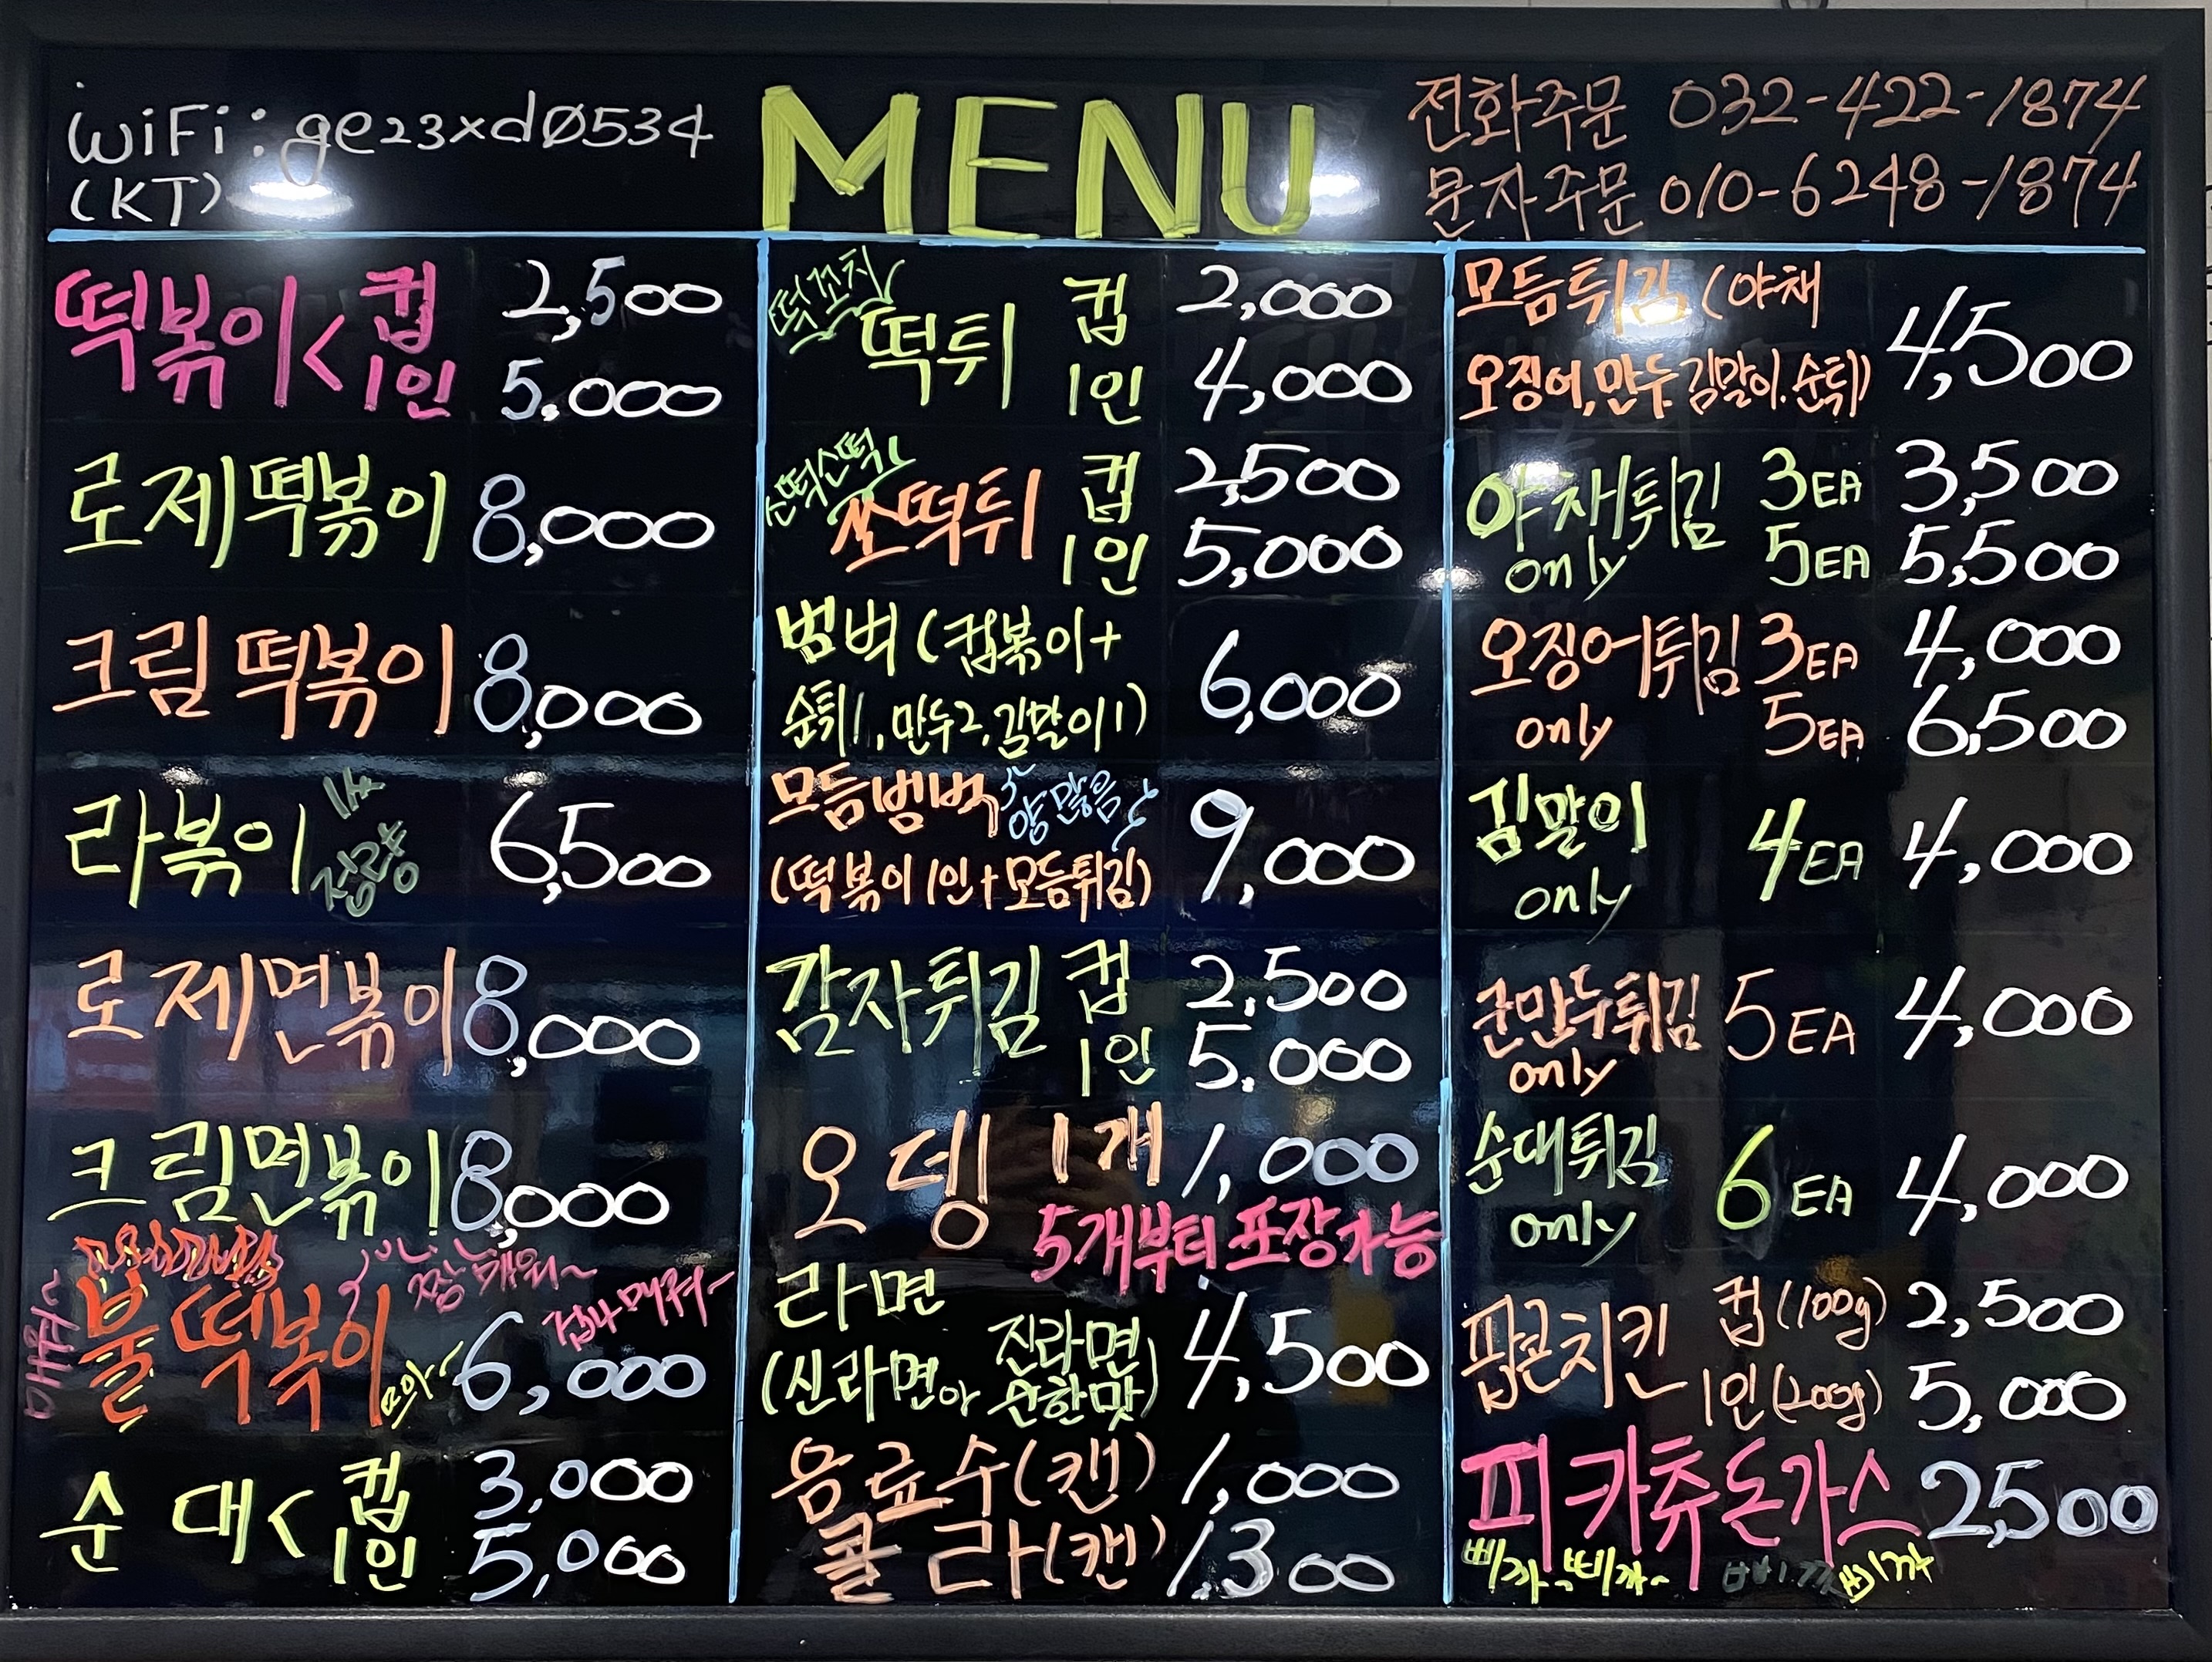 wiFi : ge23xdø534
(KT)
MENU
전화주문 032-422-1874
문자주문 010-6248-1874
떡볶이 < 컵 2,500
1인 5,000
로제떡볶이 8,000
크림떡볶이 8,000
라볶이 6,500
로제면볶이 8,000
크림면볶이 8,000
짱 매워~
매워~
불떡볶이 6,000
순대 < 컵 3,000
1인 5,000
떡꼬치
떡튀 컵 2,000
1인 4,000
소떡소떡
쏘떡튀 컵 2,500
1인 5,000
범벅 (컵볶이+
순튀1, 만두2, 김말이1) 6,000
모듬범벅 양 많음
(떡볶이 1인+모듬튀김) 9,000
감자튀김 컵 2,500
1인 5,000
오뎅 1개 1,000
5개부터 포장가능
라면 4,500
(신라면or 진라면
순한맛)
음료수(캔) 1,000
콜라(캔) 1,300
모듬튀김 (야채
오징어, 만두 김말이. 순튀) 4,500
야채튀김 3EA 3,500
only 5EA 5,500
오징어튀김 3EA 4,000
only 5EA 6,500
김말이 4EA 4,000
only
군만두튀김 5EA 4,000
only
순대튀김 6EA 4,000
only
팝콘치킨 컵(100g) 2,500
1인(200g) 5,000
피카츄돈가스 2,500
삐까~삐까~